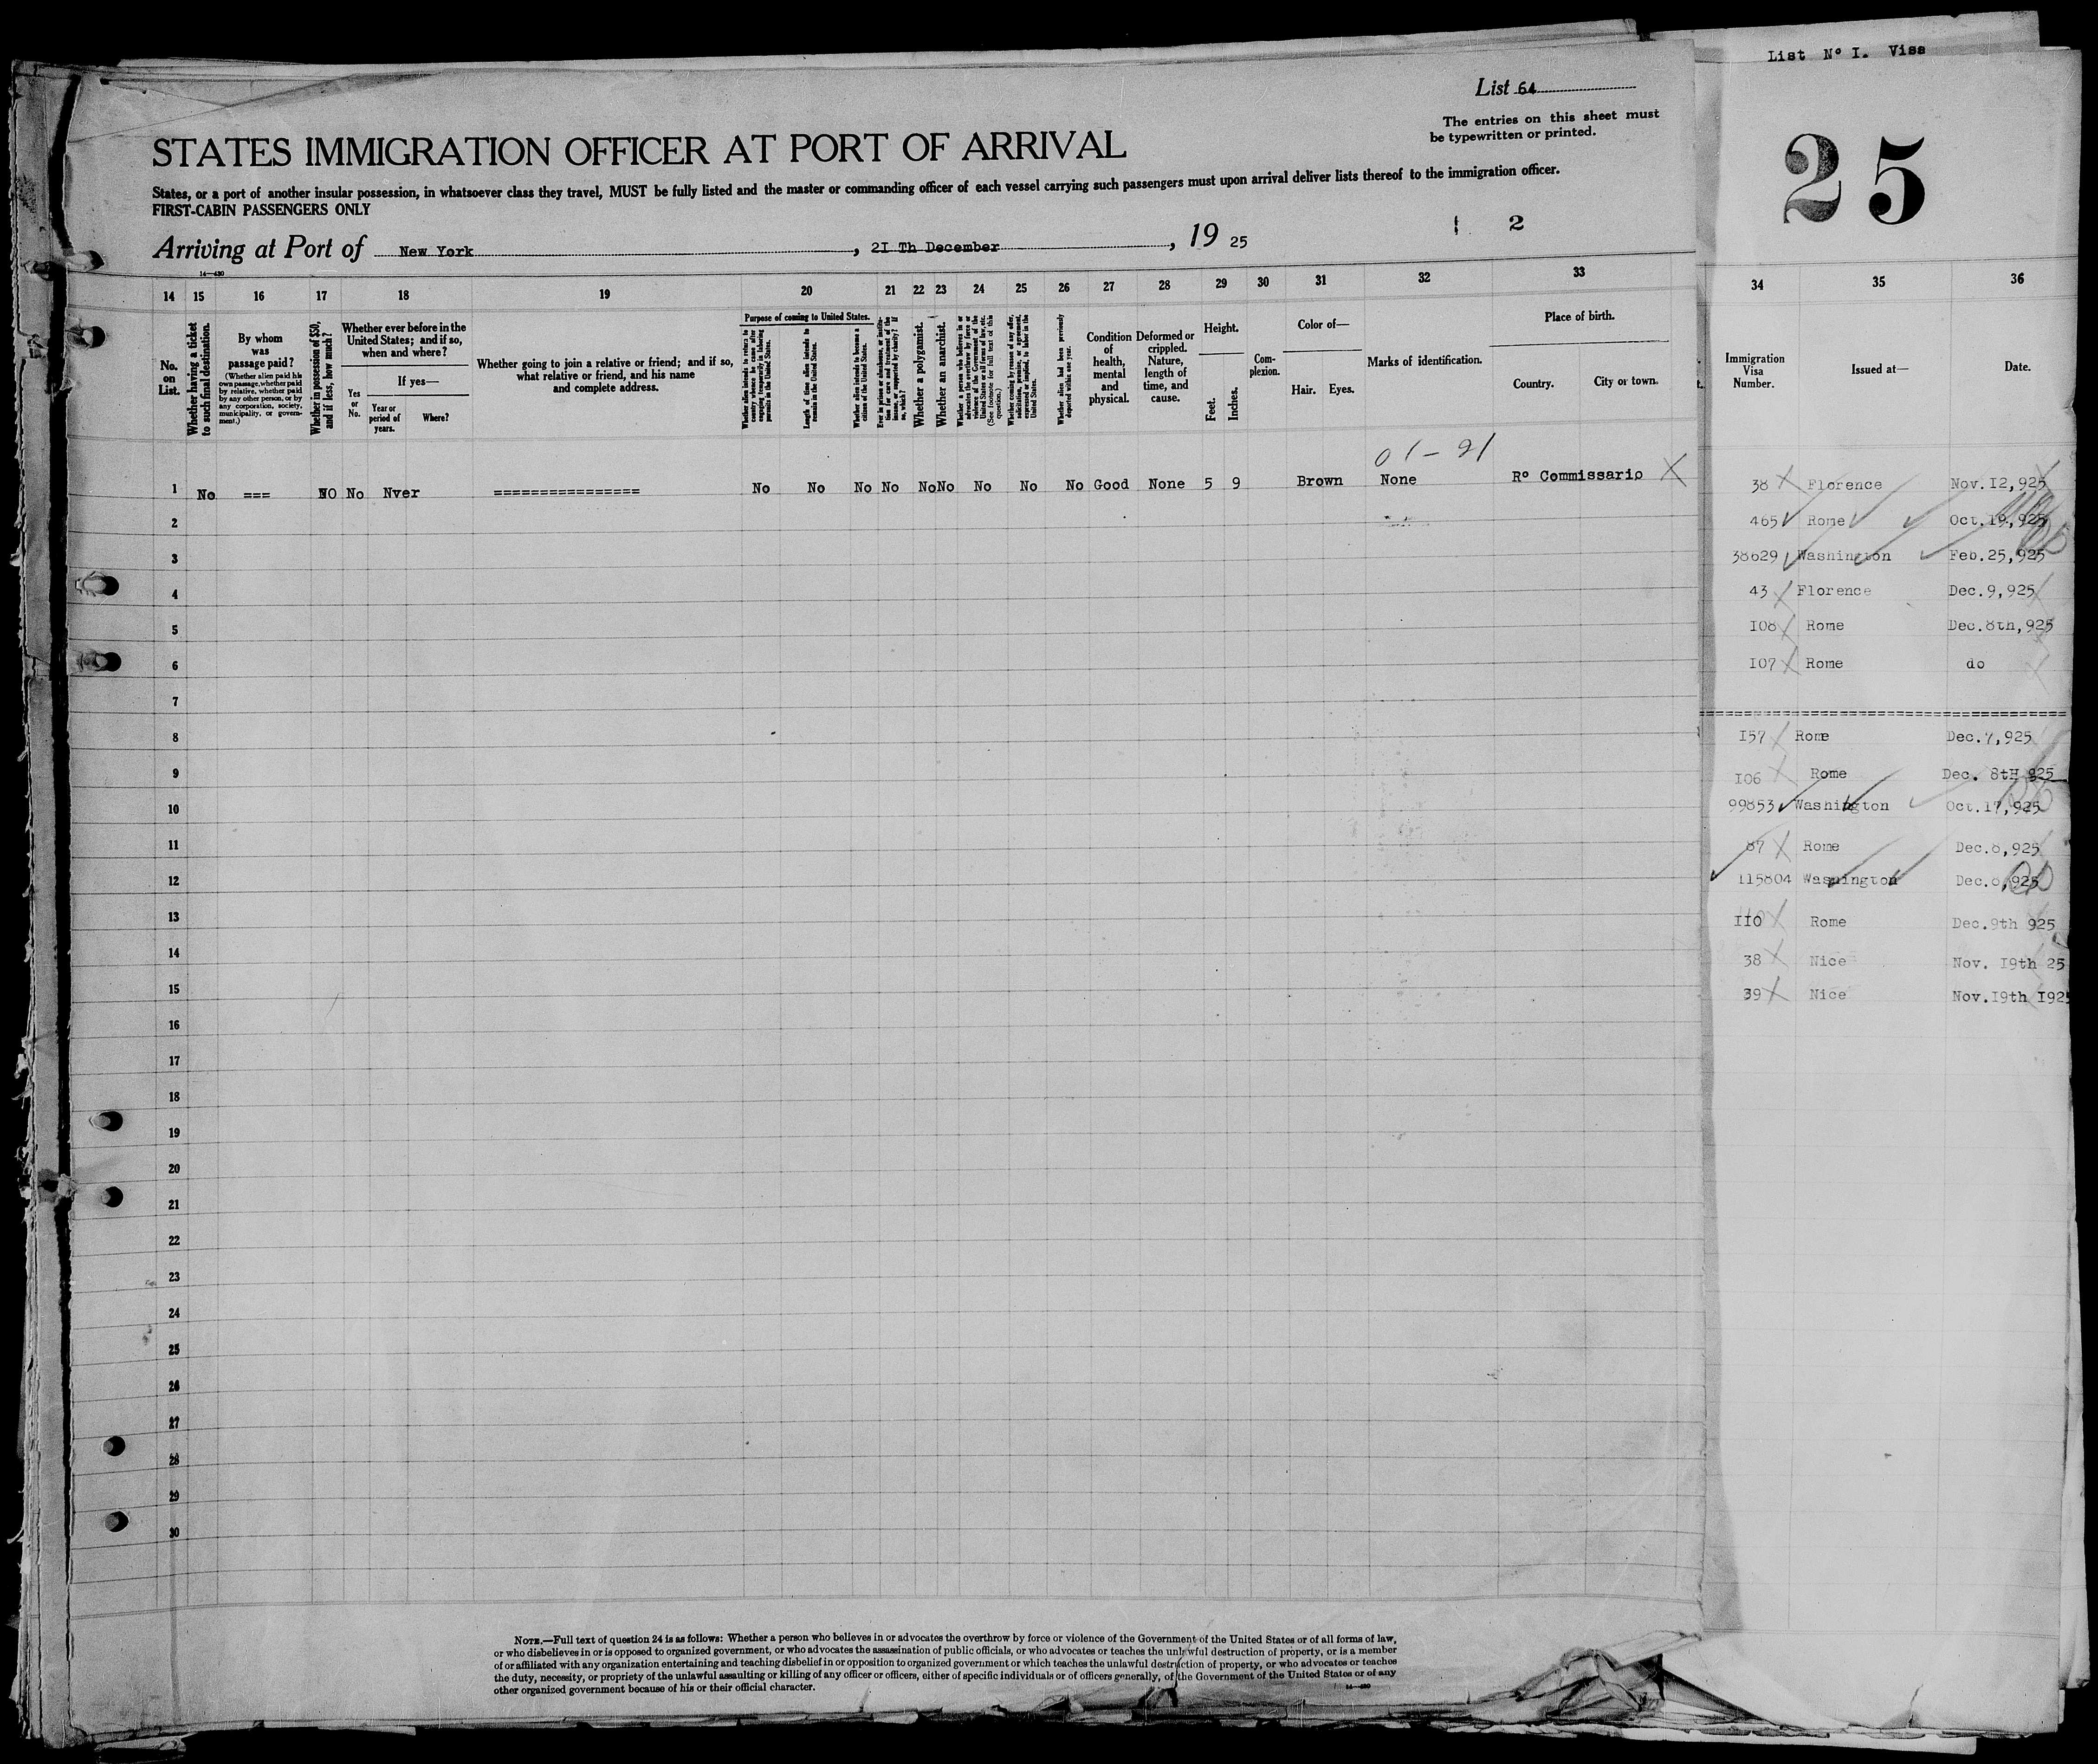 List Nº I. Visa
List 64
The entries on this sheet must
be typewritten or printed.
25
STATES IMMIGRATION OFFICER AT PORT OF ARRIVAL
States, or a port of another insular possession, in whatsoever class they travel, MUST be fully listed and the master or commanding officer of each vessel carrying such passengers must upon arrival deliver lists thereof to the immigration officer.
FIRST-CABIN PASSENGERS ONLY
2
Arriving at Port of New York, 2I Th December, 19 25
14—430
14 15 16 17 18 19 20 21 22 23 24 25 26 27 28 29 30 31 32 33
No. on List.
Whether having a ticket to such final destination.
By whom was passage paid?
(Whether alien paid his own passage, whether paid by relative, whether paid by any other person, or by any corporation, society, municipality, or government.)
Whether in possession of $50, and if less, how much?
Whether ever before in the United States; and if so, when and where?
Yes or No.
If yes—
Year or period of years.
Where?
Whether going to join a relative or friend; and if so, what relative or friend, and his name and complete address.
Purpose of coming to United States.
Whether alien intends to return to country whence he came after engaging temporarily in laboring pursuits in the United States.
Length of time alien intends to remain in the United States.
Whether alien intends to become a citizen of the United States.
Ever in prison or almshouse, or institution for care and treatment of the insane, or supported by charity? If so, which?
Whether a polygamist.
Whether an anarchist.
Whether a person who believes in or advocates the overthrow by force or violence of the Government of the United States or all forms of law, etc. (See footnote for full text of this question.)
Whether coming by reason of any offer, solicitation, promise, or agreement, expressed or implied, to labor in the United States.
Whether alien had been previously deported within one year.
Condition of health, mental and physical.
Deformed or crippled. Nature, length of time, and cause.
Height.
Feet.
Inches.
Complexion.
Color of—
Hair. Eyes.
Marks of identification.
Place of birth.
Country. City or town.
01-91
1 No === NO No Nver ================ No No No No No No No No No Good None 5 9 Brown None Rº Commissario X
2
3
4
5
6
7
8
9
10
11
12
13
14
15
16
17
18
19
20
21
22
23
24
25
26
27
28
29
30
34 35 36
Immigration Visa Number.
Issued at—
Date.
t.
38 Florence Nov.I2,925
465 Rome Oct.19,925
38629 Washington Feb.25,925
43 Florence Dec.9,925
I08 Rome Dec.8th,925
I07 Rome do
I57 Rome Dec.7,925
I06 Rome Dec. 8tH 925
99853 Washington Oct.17,925
87 Rome Dec.8,925
115804 Washington Dec.8,925
IIO Rome Dec.9th 925
38 Nice Nov. I9th 25
39 Nice Nov.I9th I925
NOTE.—Full text of question 24 is as follows: Whether a person who believes in or advocates the overthrow by force or violence of the Government of the United States or of all forms of law,
or who disbelieves in or is opposed to organized government, or who advocates the assassination of public officials, or who advocates or teaches the unlawful destruction of property, or is a member
of or affiliated with any organization entertaining and teaching disbelief in or opposition to organized government or which teaches the unlawful destruction of property, or who advocates or teaches
the duty, necessity, or propriety of the unlawful assaulting or killing of any officer or officers, either of specific individuals or of officers generally, of the Government of the United States or of any
other organized government because of his or their official character.
14—430